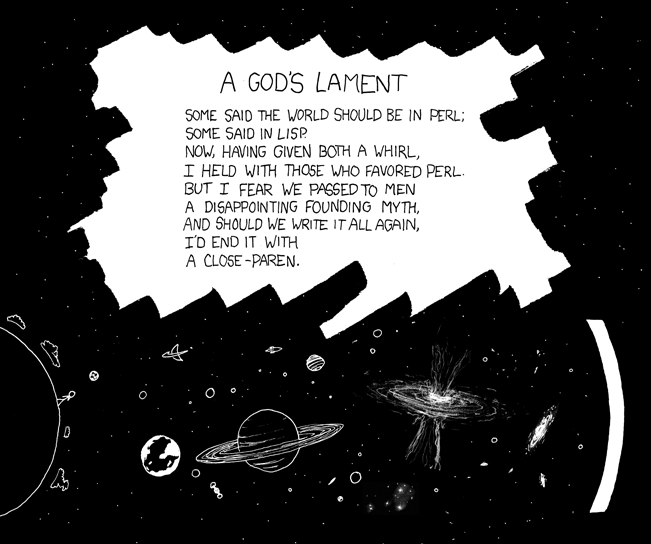 A GOD'S LAMENT
SOME SAID THE WORLD SHOULD BE IN PERL;
SOME SAID IN LISP.
NOW, HAVING GIVEN BOTH A WHIRL,
I HELD WITH THOSE WHO FAVORED PERL.
BUT I FEAR WE PASSED TO MEN
A DISAPPOINTING FOUNDING MYTH,
AND SHOULD WE WRITE IT ALL AGAIN,
I'D END IT WITH
A CLOSE-PAREN.